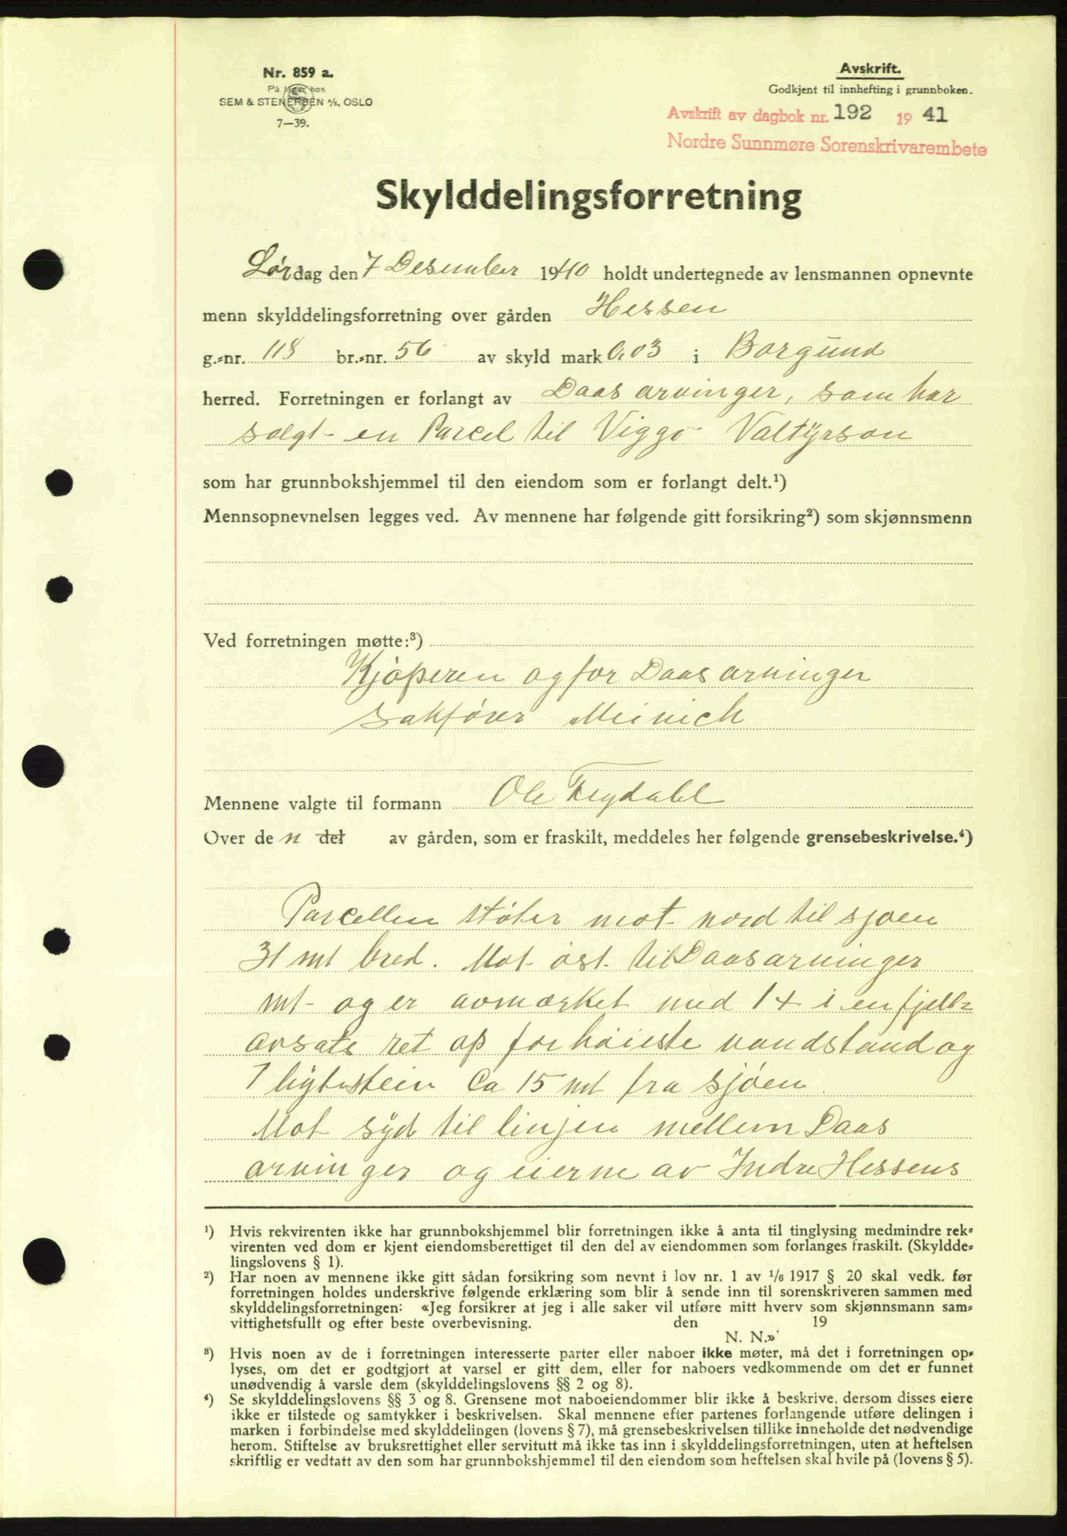 Nr. 859 a.
På lager hos
SEM & STENERSEN A/S, OSLO
7—39.
Avskrift.
Godkjent til innhefting i grunnboken.
Avskrift av dagbok nr. 192 1941
Nordre Sunnmøre Sorenskrivarembete
Skylddelingsforretning
Lørdag den 7 Desember 1940 holdt undertegnede av lensmannen opnevnte
menn skylddelingsforretning over gården Hessen
g.-nr. 118 br.-nr. 56 av skyld mark 0,03 i Borgund
herred. Forretningen er forlangt av Daas arvinger, som har
solgt en Parcel til Viggo Valtyrson
som har grunnbokshjemmel til den eiendom som er forlangt delt.¹)
Mennsopnevnelsen legges ved. Av mennene har følgende gitt forsikring²) som skjønnsmenn
Ved forretningen møtte:³)
Kjøperen og for Daas arvinger
sakfører Meinich
Mennene valgte til formann Ole Flydahl
Over den det av gården, som er fraskilt, meddeles her følgende grensebeskrivelse.⁴)
Parcellen støter mot nord til sjøen
31 mt bred. Mot øst til Daas arvinger
mt og er avmærket med 1 + i en fjell-
avsats ret op for høieste vandstand og
1 bytestein ca 15 mt fra sjøen.
Mot syd til linjen mellem Daas
arvinger og eierne av Indre Hessens
¹) Hvis rekvirenten ikke har grunnbokshjemmel blir forretningen ikke å anta til tinglysing medmindre rek-
virenten ved dom er kjent eiendomsberettiget til den del av eiendommen som forlanges fraskilt. (Skyldde-
lingslovens § 1).
²) Har noen av mennene ikke gitt sådan forsikring som nevnt i lov nr. 1 av 1/6 1917 § 20 skal vedk. før
forretningen holdes underskrive følgende erklæring som blir å sende inn til sorenskriveren sammen med
skylddelingsforretningen: «Jeg forsikrer at jeg i alle saker vil utføre mitt hverv som skjønnsmann sam-
vittighetsfullt og efter beste overbevisning. den 19
N. N.»
³) Hvis noen av de i forretningen interesserte parter eller naboer ikke møter, må det i forretningen op-
lyses, om det er godtgjort at varsel er gitt dem, eller for naboers vedkommende om det er funnet
unødvendig å varsle dem (skylddelingslovens §§ 2 og 8).
⁴) Se skylddelingslovens §§ 3 og 8. Grensene mot naboeiendommer blir ikke å beskrive, dersom disses eiere
ikke er tilstede og samtykker i beskrivelsen. Skal mennene efter partenes forlangende utføre delingen i
marken i forbindelse med skylddelingen (lovens § 7), må grensebeskrivelsen tillike inneholde det nødvendige
herom. Stiftelse av bruksrettighet eller servitutt må ikke tas inn i skylddelingsforretningen, uten at heftelsen
skriftlig er vedtatt av den som har grunnbokshjemmel til den eiendom som heftelsen skal hvile på (lovens § 5).